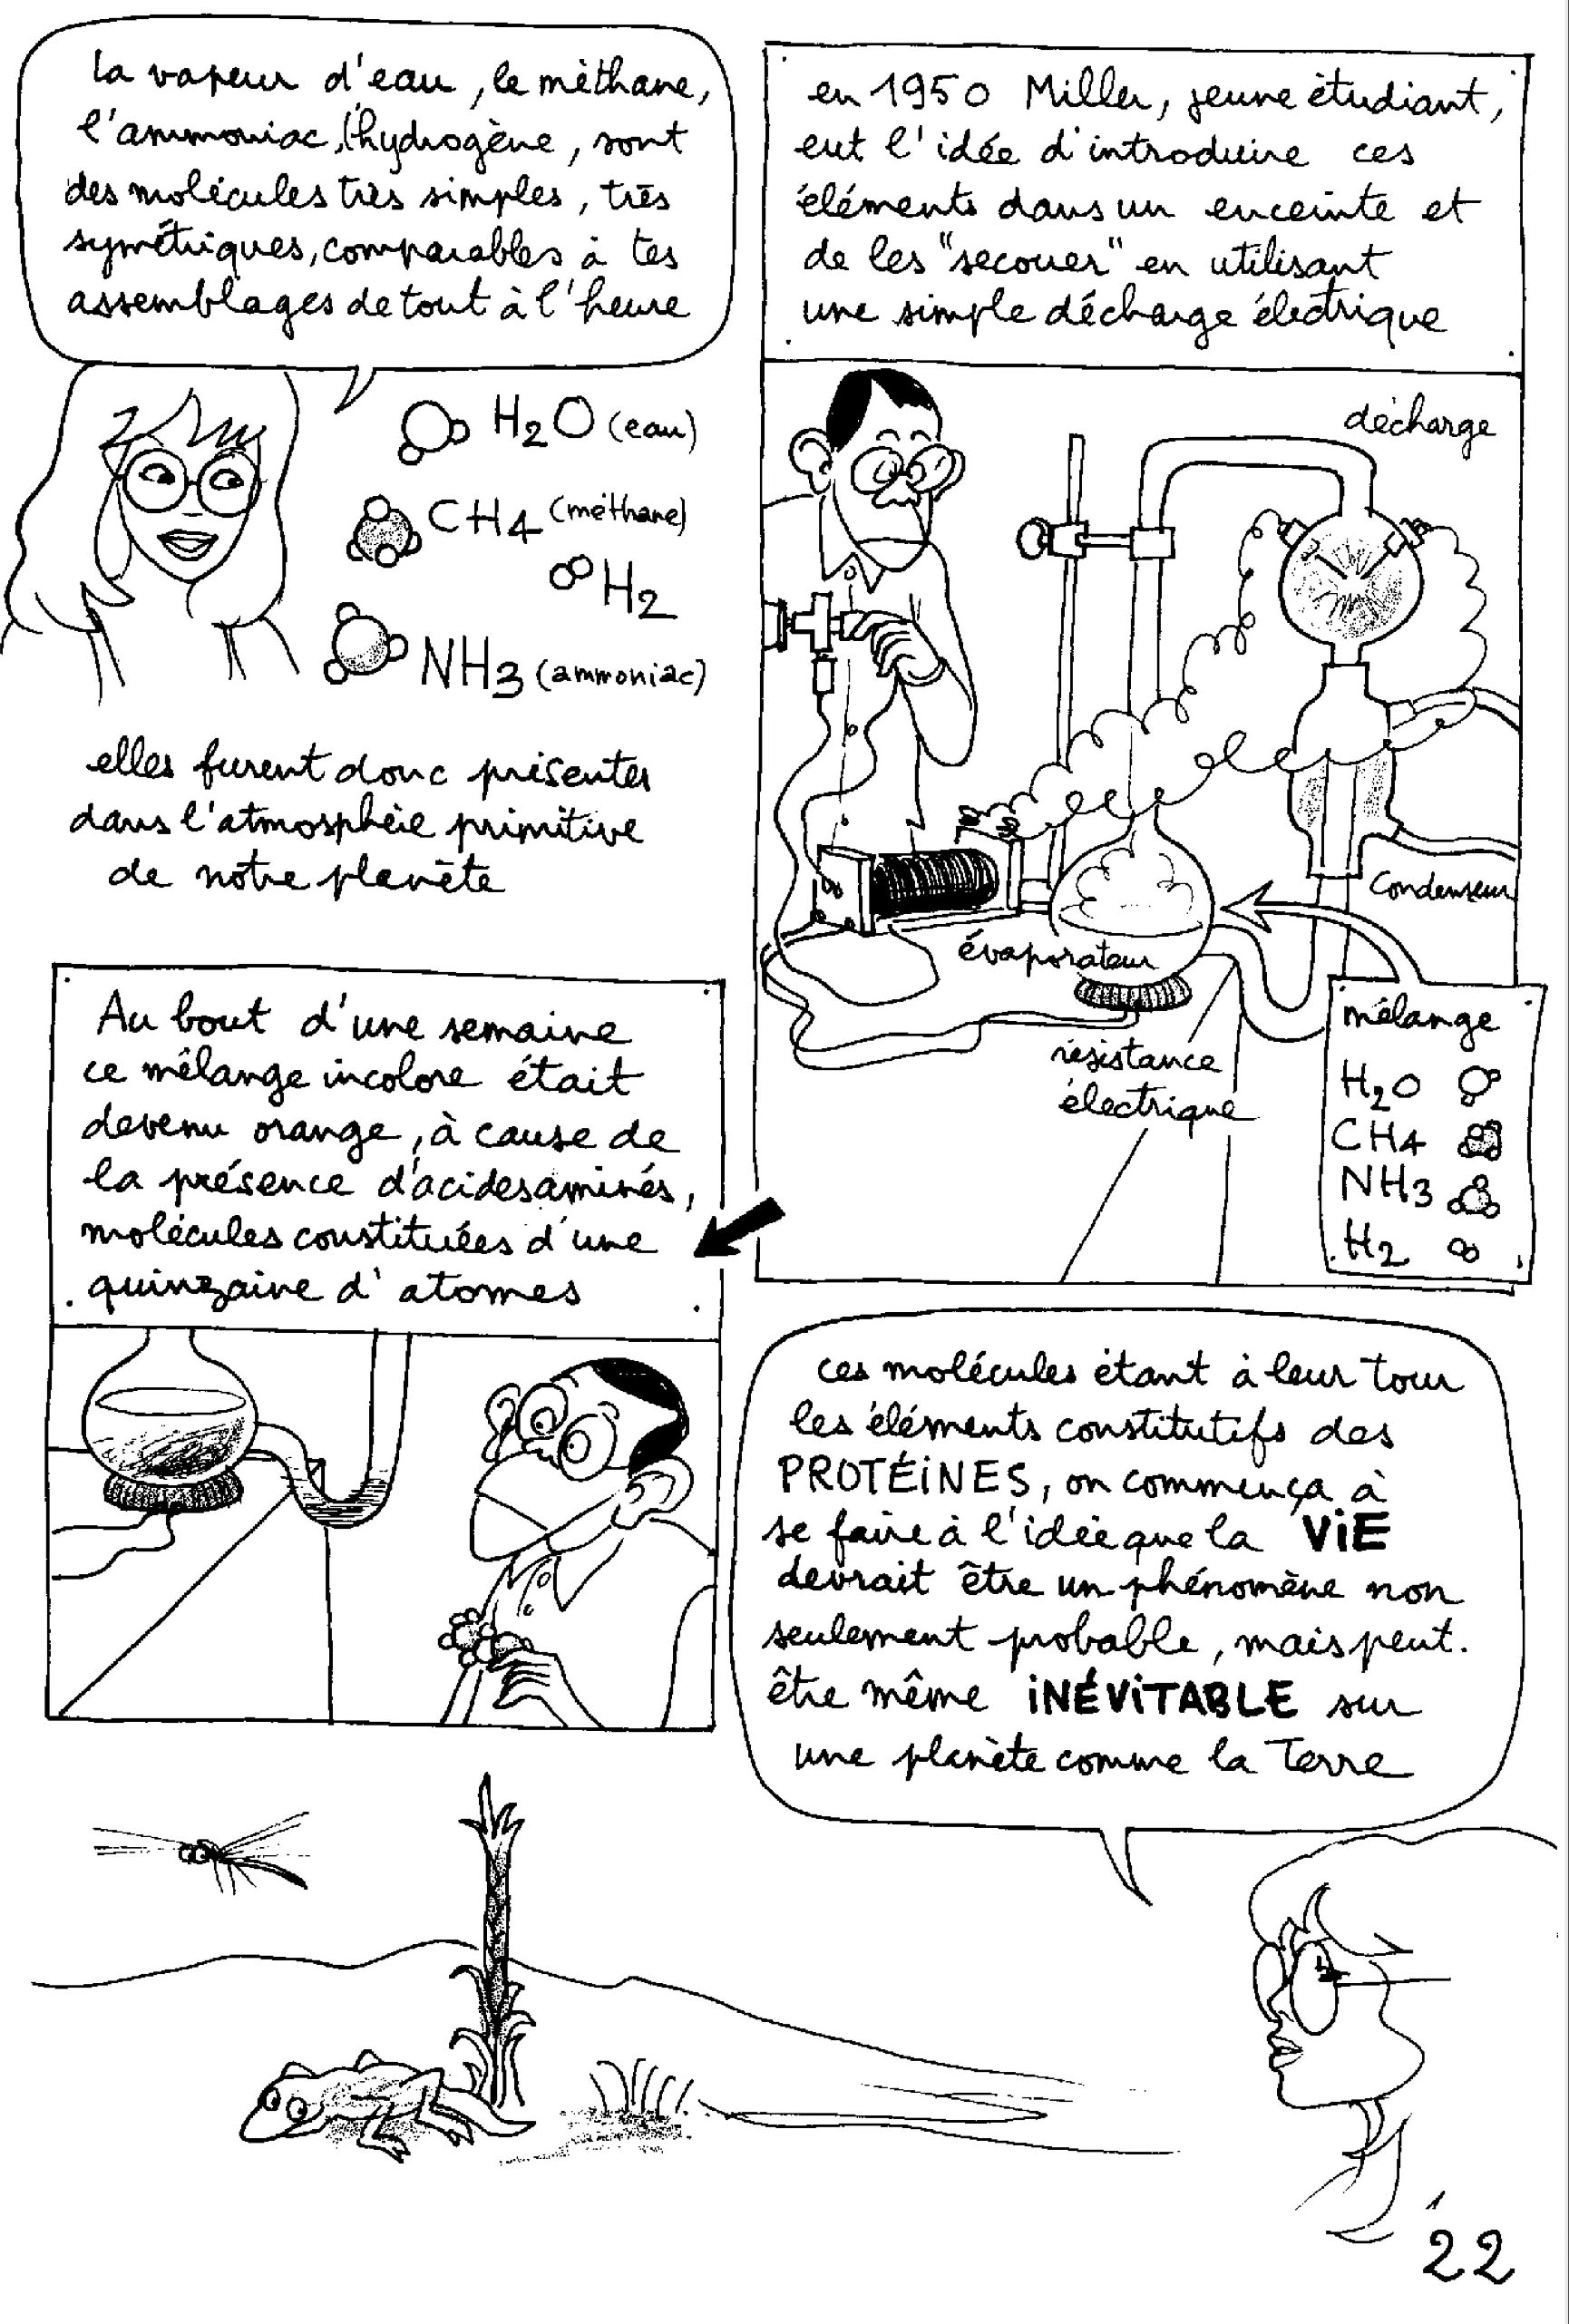 la vapeur d'eau, le méthane,
l'ammoniac, l'hydrogène, sont
des molécules très simples, très
symétriques, comparables à tes
assemblages de tout à l'heure
H2O (eau)
CH4 (méthane)
H2
NH3 (ammoniac)
elles furent donc présentes
dans l'atmosphère primitive
de notre planète
en 1950 Miller, jeune étudiant,
eut l'idée d'introduire ces
éléments dans un enceinte et
de les "secouer" en utilisant
une simple décharge électrique
décharge
Condenseur
évaporateur
résistance
électrique
mélange
H2O
CH4
NH3
H2
Au bout d'une semaine
ce mélange incolore était
devenu orange, à cause de
la présence d'acides aminés,
molécules constituées d'une
quinzaine d'atomes
ces molécules étant à leur tour
les éléments constitutifs des
PROTÉiNES, on commença à
se faire à l'idée que la ViE
devrait être un phénomène non
seulement probable, mais peut.
être même iNÉViTABLE sur
une planète comme la Terre
22